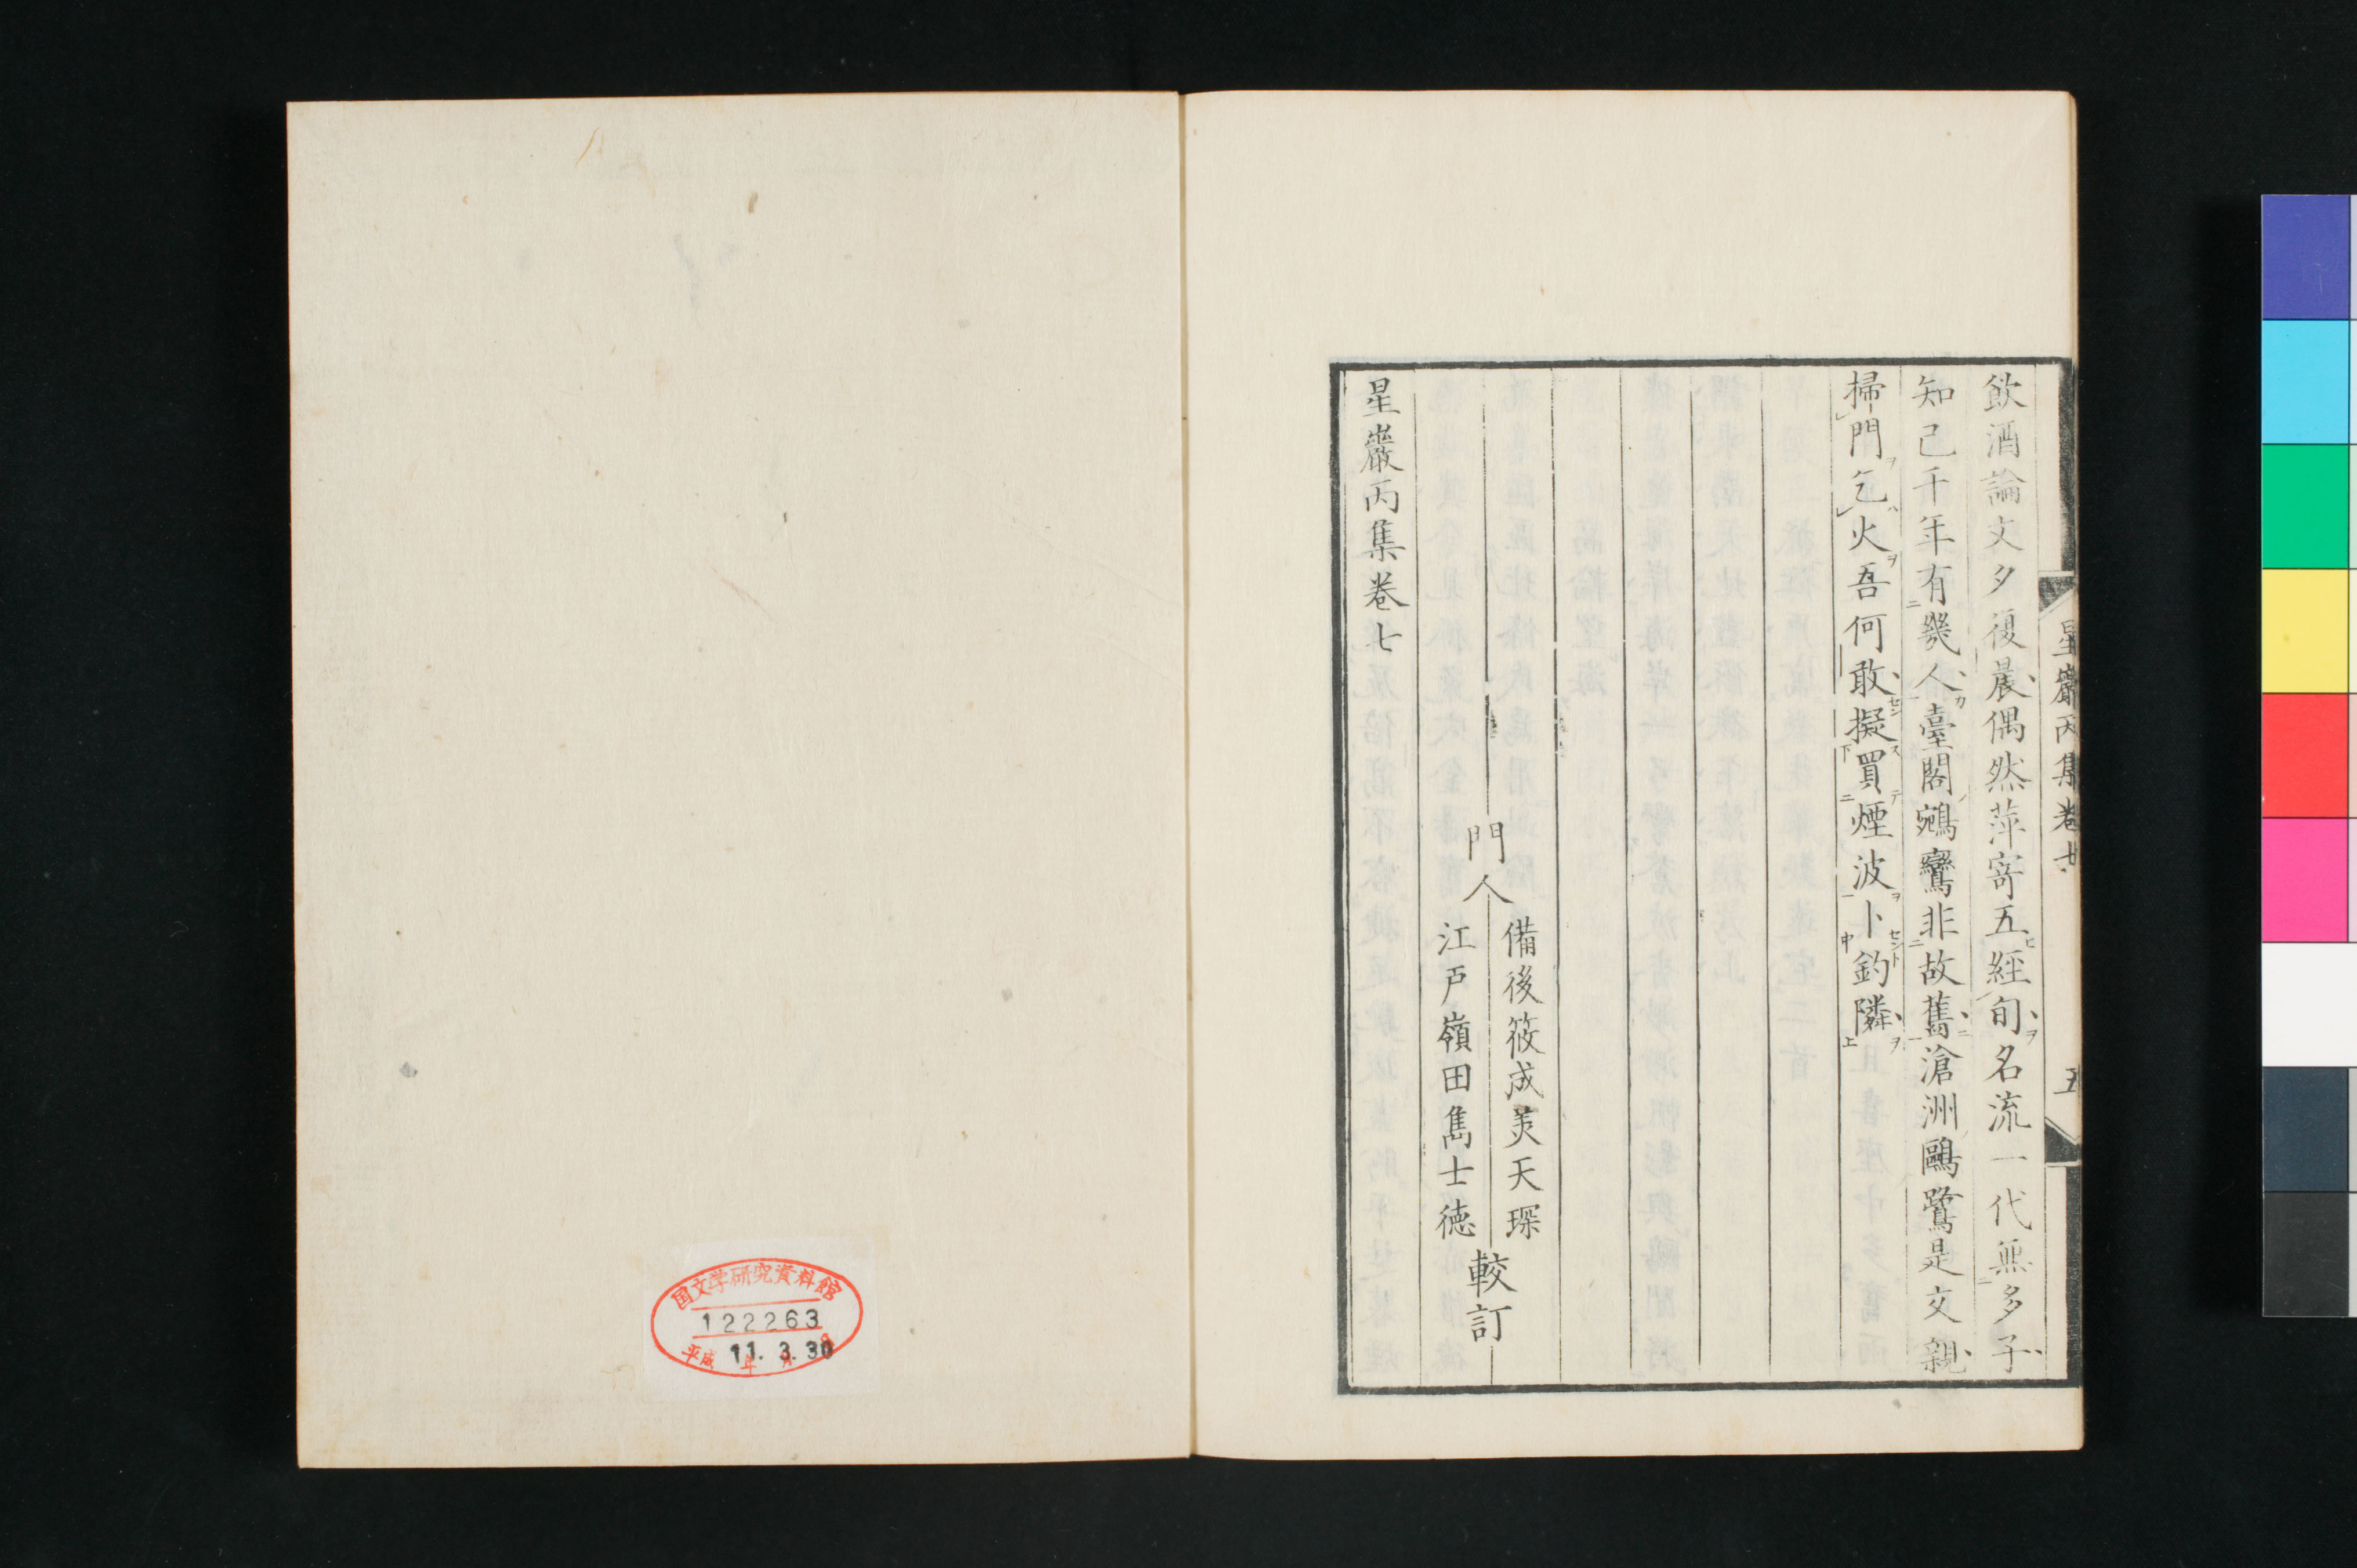 飲酒論文夕復晨偶然萍寄五經旬名流一代無多子
知己千年有幾人臺閣鵷鸞非故舊滄洲鷗鷺是交親
掃門乞火吾何敢擬買煙波卜釣隣
門人
備後筱成美天琛
江戸嶺田雋士徳
較訂
星巖丙集卷七
星巖丙集卷七
五
国文学研究資料館
122263
平成 11年 3月 30日